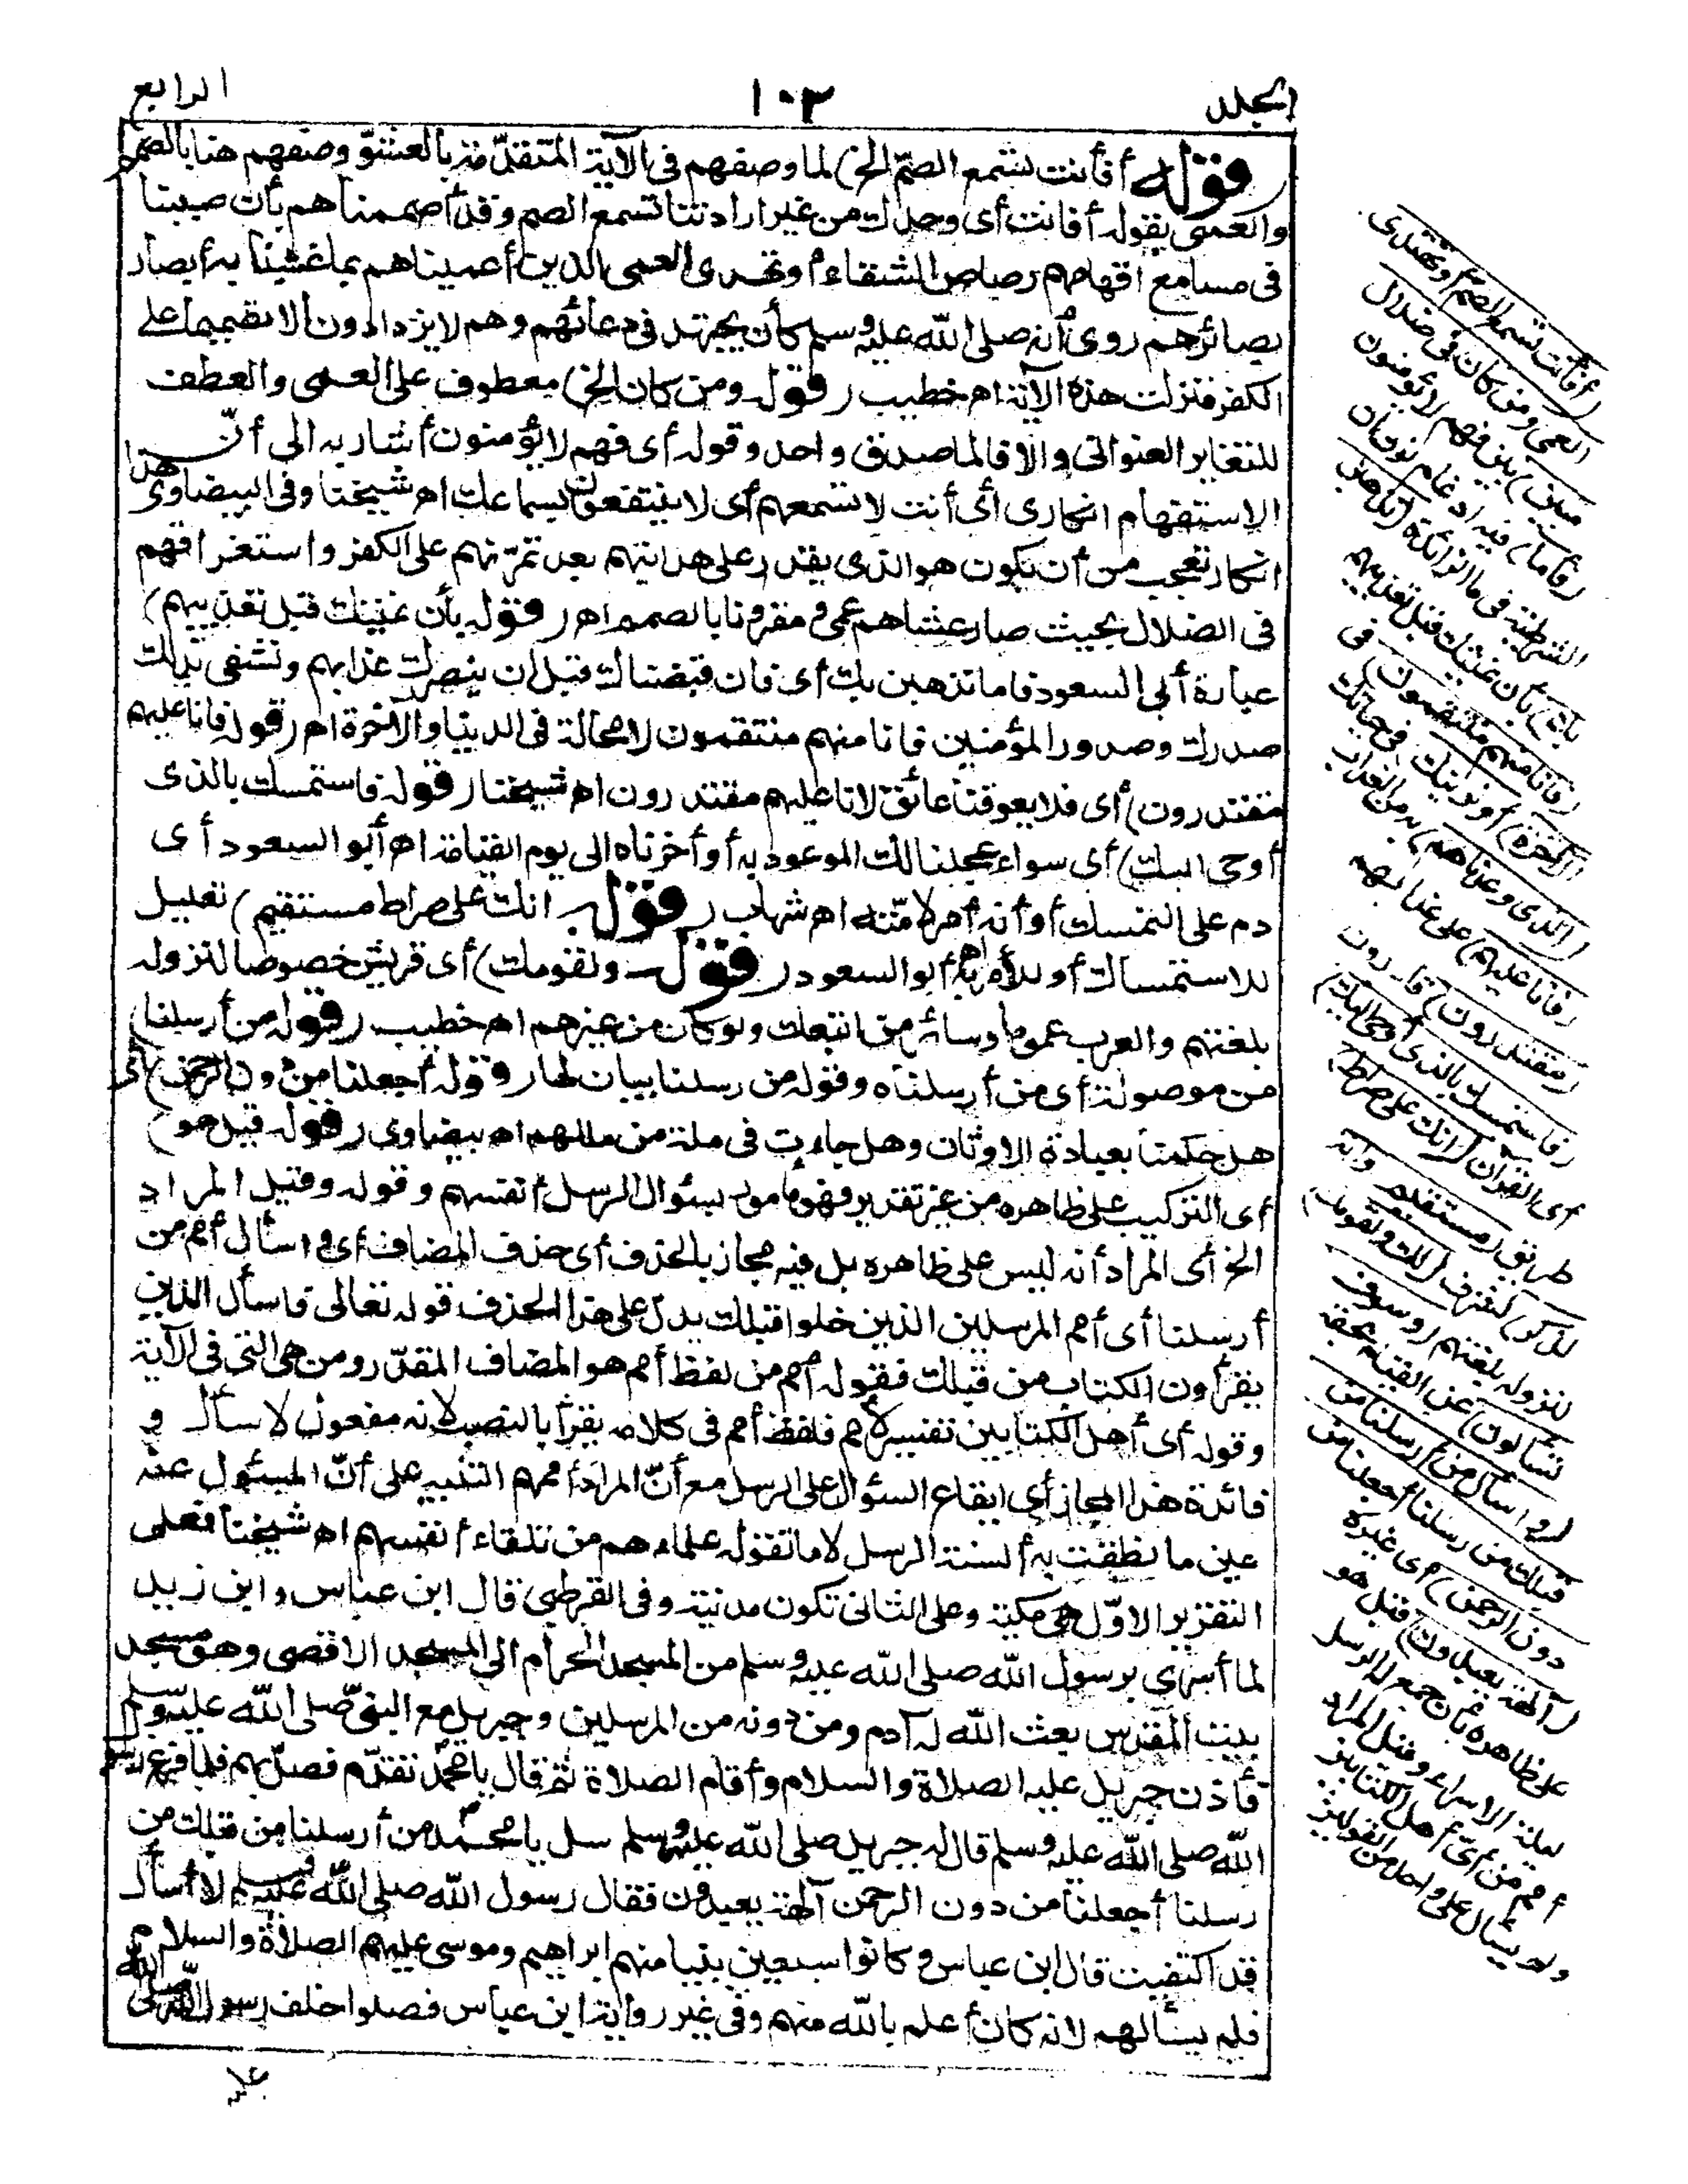 المجلد
١٠٣
الرابع
قوله أفأنت تسمع الصمّ الخ) لما وصفهم فى الآية المتقدّمة بالعشوّ وصفهم هنا بالصمم
والعمى بقوله أفأنت أى وحدك من غير ارادتنا تسمع الصم وقد أصممناهم بأن صببنا
فى مسامع افهامهم رصاص الشقاء أو تهدى العمى الذين أعميناهم بما غشينا به أبصار
بصائرهم روى أنه صلى الله عليه وسلم كان يجتهد فى دعائهم وهم لا يزدادون الا تصميما على
الكفر فنزلت هذه الآية اه خطيب (قوله ومن كان الخ) معطوف على العمى والعطف
للتغاير العنوانى والا فالماصدق واحد وقوله أى فهم لا يؤمنون أشار به الى أنّ هذا
الاستفهام انكارى أى أنت لا تسمعهم أى لا ينتفعون بسماعك اه شيخنا وفى البيضاوى
انكار تعجيب من أن يكون هو الذى يقدر على هدايتهم بعد تمرّنهم على الكفر واستغراقهم
فى الضلال بحيث صار عشاهم عمى مقرونا بالصمم اه (قوله بأن نميتك قبل تعذيبهم)
عبارة أبى السعود فاما نذهبن بك أى فان قبضناك قبل ان ينصرك عذابهم ونشفى بذلك
صدرك وصدور المؤمنين فانا منهم منتقمون لا محالة فى الدنيا والآخرة اه (قوله فانا عليهم
مقتدرون) أى فلا يعوقنا عائق لانا عليهم مقتدرون اه شيخنا (قوله فاستمسك بالذى
أوحى اليك) أى سواء عجلنا لك الموعود به أو أخرناه الى يوم القيامة اه أبو السعود أى
دم على التمسك أو أنه أمر لأمّته اه شهاب (قوله انك على صراط مستقيم) تعليل
للاستمساك أو للأمر به اه أبو السعود (قوله ولقومك) أى قريش خصوصا لنزوله
بلغتهم والعرب عموما وسائر من اتبعك ولو كان من غيرهم اه خطيب (قوله من أرسلنا)
من موصولة أى من أرسلناه وقوله من رسلنا بيان لها (قوله أجعلنا من دون الرحمن) أى
هل حكمنا بعبادة الاوثان وهل جاءت فى ملة من مللهم اه بيضاوى (قوله قيل هو)
أى التركيب على ظاهره من غير تقدير فهو مأمور بسؤال الرسل أنفسهم وقوله وقيل المراد
الخ أى المراد أنه ليس على ظاهره بل فيه مجاز بالحذف أى حذف المضاف أى واسأل أمم من
أرسلنا أى أمم المرسلين الذين خلوا قبلك يدل على هذا الحذف قوله تعالى فاسأل الذين
يقرأون الكتاب من قبلك فقوله أمم من لفظ أمم هو المضاف المقدّر ومن هى التى فى الآية
وقوله أى أهل الكتابين تفسير لأمم فلفظ أمم فى كلامه يقرأ بالنصب لانه مفعول لاسأل و
فائدة هذا المجاز أى ايقاع السؤال على الرسل مع أنّ المراد أممهم التنبيه على أنّ المسئول عنه
عين ما نطقت به ألسنة الرسل لا ما تقوله علماءهم من تلقاء أنفسهم اه شيخنا فعلى
التقرير الاوّل هى مكية وعلى الثانى تكون مدنية وفى القرطبى قال ابن عباس وابن زيد
لما أسرى برسول الله صلى الله عليه وسلم من المسجد الحرام الى المسجد الاقصى وهو مسجد
بيت المقدس بعث الله له آدم ومن دونه من المرسلين وجبريل مع النبىّ صلى الله عليه وسلم
فأذن جبريل عليه الصلاة والسلام وأقام الصلاة ثم قال يا محمد تقدّم فصلّ بهم فلما فرغ رسول
الله صلى الله عليه وسلم قال له جبريل صلى الله عليه وسلم سل يا محمد من أرسلنا من قبلك من
رسلنا أجعلنا من دون الرحمن آلهة يعبدون فقال رسول الله صلى الله عليه وسلم لا أسأل
قد اكتفيت قال ابن عباس وكانوا سبعين نبيا منهم ابراهيم وموسى عليهم الصلاة والسلام
فلم يسألهم لانه كان أعلم بالله منهم وفى غير رواية ابن عباس فصلوا خلف رسول الله صلى الله
(أفأنت تسمع الصمّ أو تهدى
العمى ومن كان فى ضلال
مبين) بين فهم لا يؤمنون
(فأما) فيه ادغام نون ان
الشرطية فى ما الزائدة (نذهبن
بك) بأن نميتك قبل تعذيبهم
(فانا منهم منتقمون) فى
الآخرة (أو نرينك) فى حياتك
(الذى وعدناهم) به من العذاب
(فانا عليهم) على عذابهم
(مقتدرون) قادرون
(فاستمسك بالذى أوحى اليك)
أى القرآن (انك على صراط)
طريق (مستقيم وانه
لذكر) لشرف (لك ولقومك)
لنزوله بلغتهم (وسوف
تسألون) عن القيام بحقه
(واسأل من أرسلنا من
قبلك من رسلنا أجعلنا من
دون الرحمن) أى غيره
(آلهة يعبدون) قيل هو
على ظاهره بأن جمع له الرسل
ليلة الاسراء وقيل المراد
أمم من أىّ أهل الكتابين
ولم يسأل على واحد من القولين